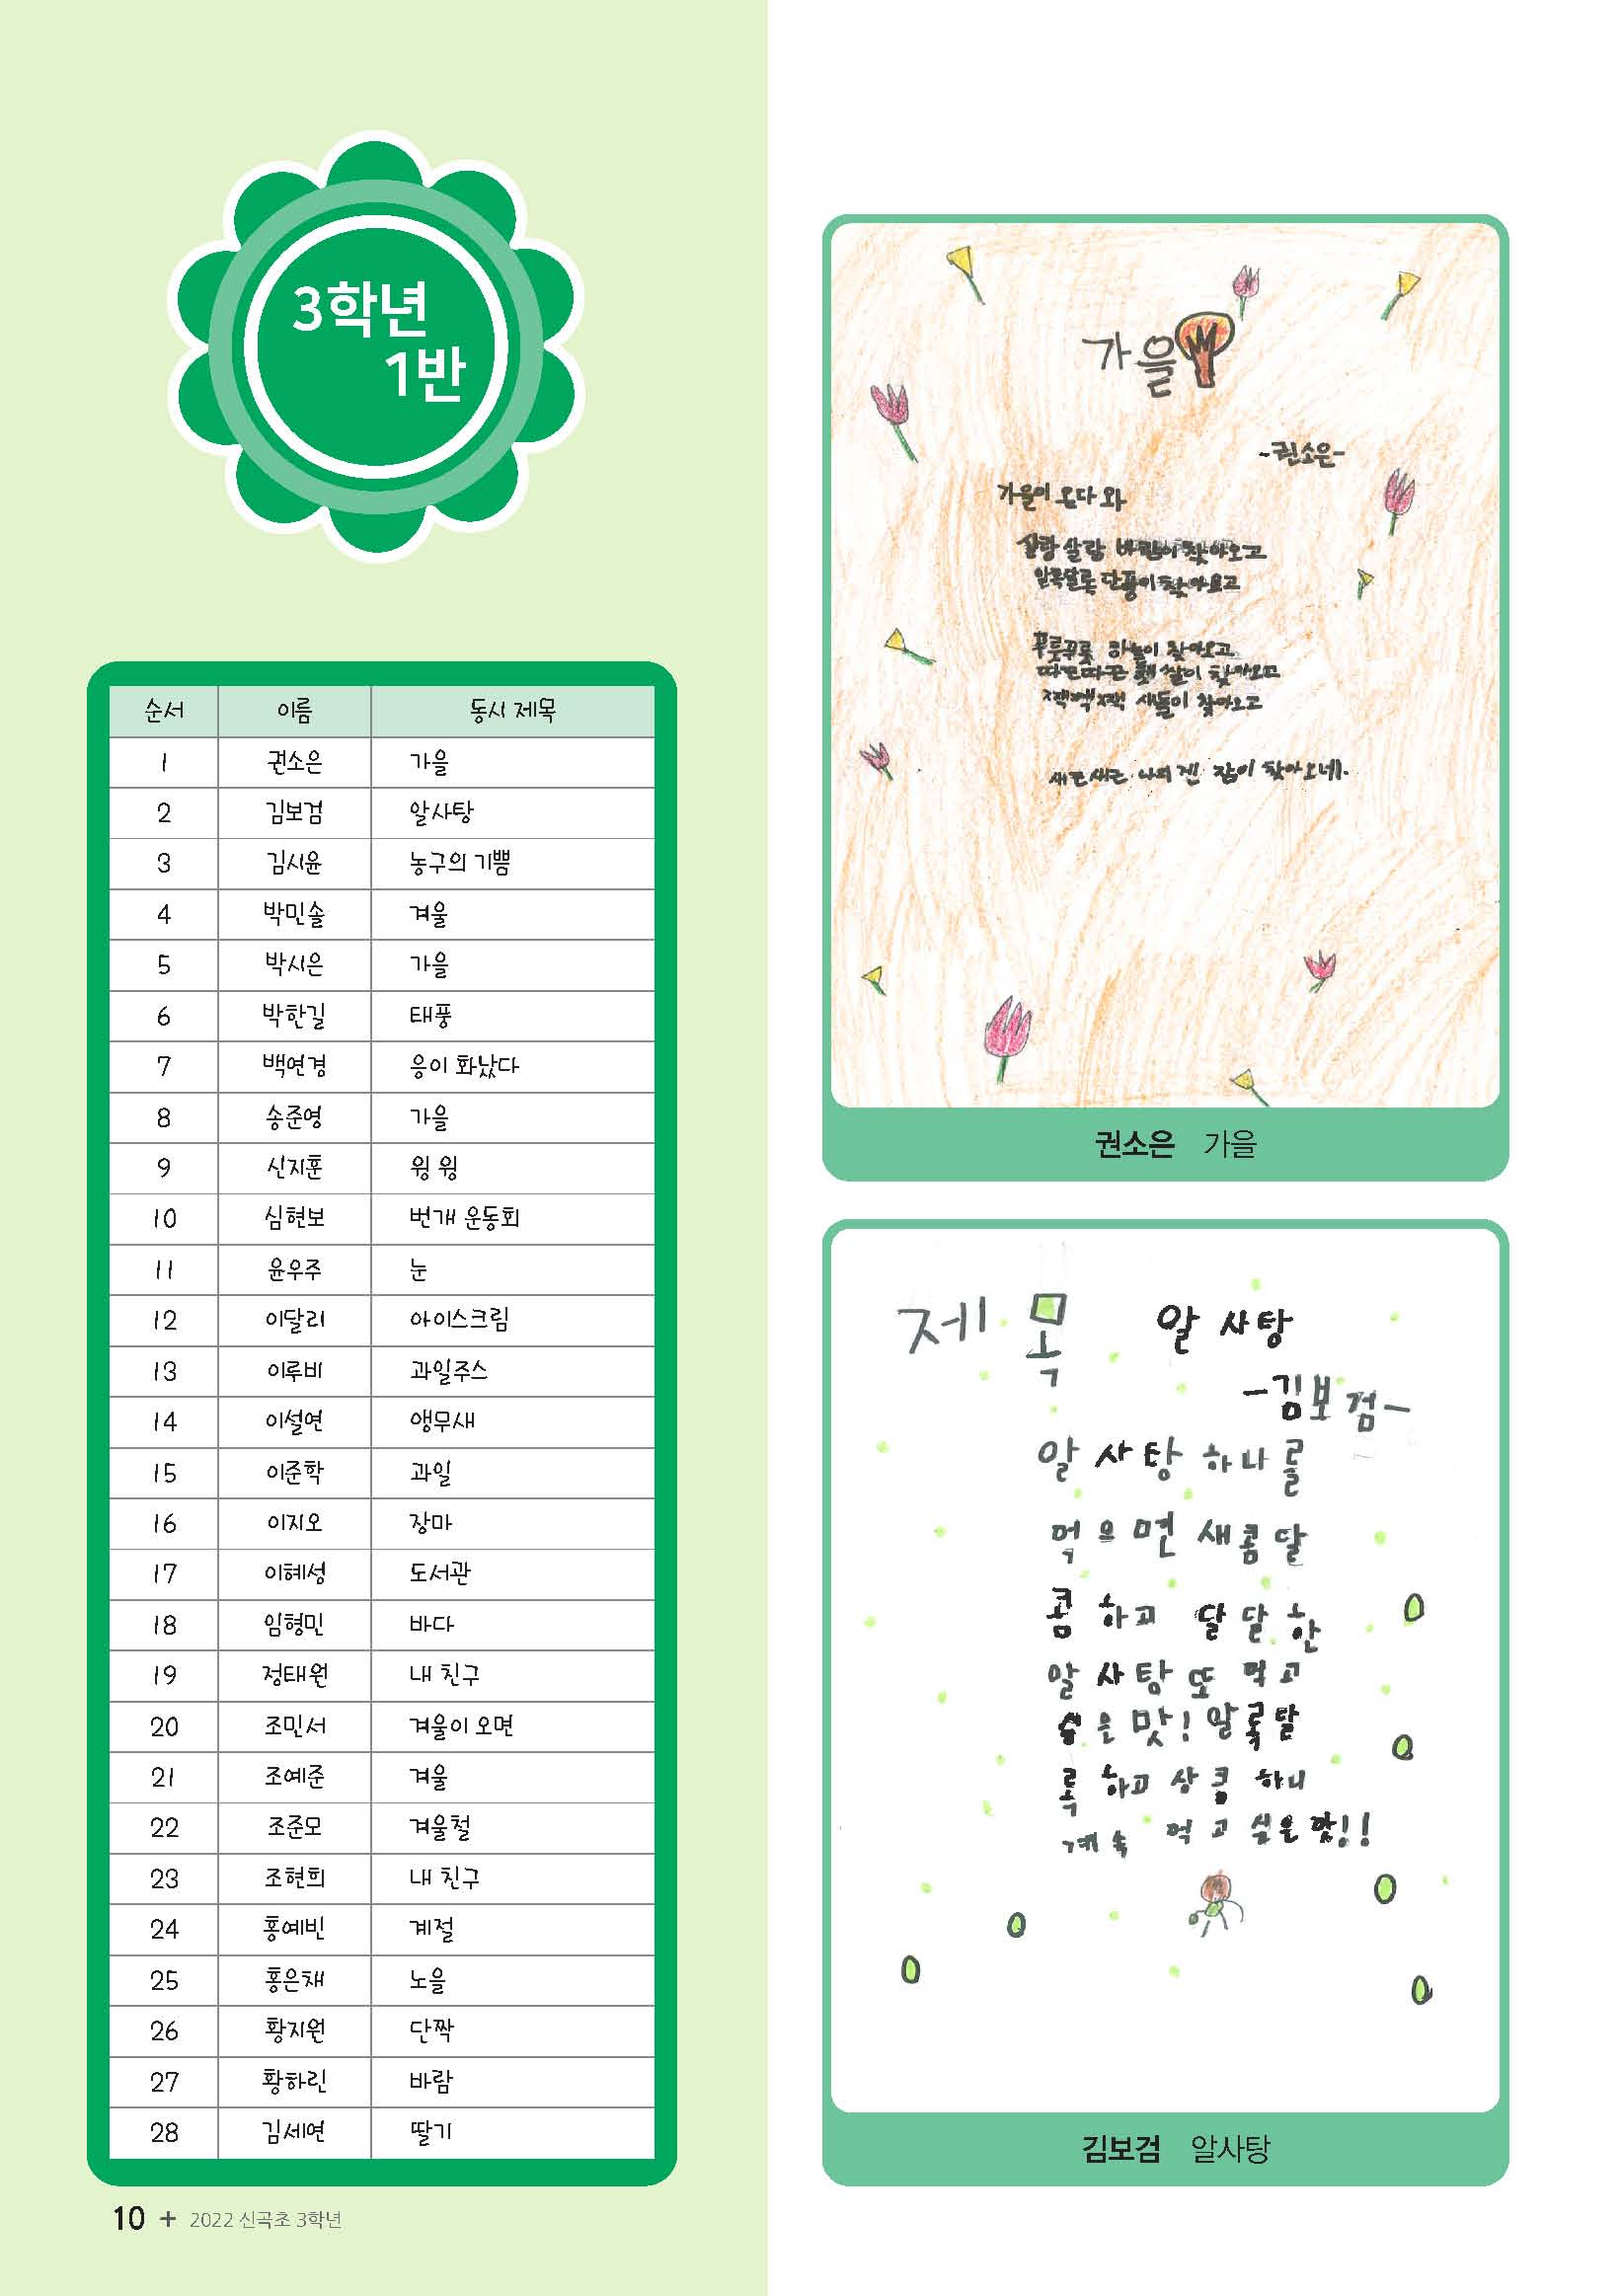 3학년
1반
순서 이름 동시 제목
1 권소은 가을
2 김보검 알사탕
3 김시윤 농구의 기쁨
4 박민솔 겨울
5 박시은 가을
6 박한길 태풍
7 백연경 응이 화났다
8 송준영 가을
9 신지훈 윙 윙
10 심현보 번개 운동회
11 윤우주 눈
12 이달리 아이스크림
13 이루비 과일주스
14 이설연 앵무새
15 이준학 과일
16 이지오 장마
17 이혜성 도서관
18 임형민 바다
19 정태원 내 친구
20 조민서 겨울이 오면
21 조예준 겨울
22 조준모 겨울철
23 조현희 내 친구
24 홍예빈 계절
25 홍은채 노을
26 황지원 단짝
27 황하린 바람
28 김세연 딸기
10 + 2022 신곡초 3학년
가을
-권소은-
가을이 온다 와
살랑 살랑 바람이 찾아오고
알록달록 단풍이 찾아오고
푸릇푸릇 하늘이 찾아오고
따끈따끈 햇살이 찾아오고
짹짹짹 새들이 찾아오고
새근새근 나의 겐 잠이 찾아오네.
권소은 가을
제목 알사탕
-김보검-
알사탕 하나를
먹으면 새콤달
콤하고 달달한
알사탕 또 먹고
싶은 맛! 알록달
록하고 상큼하니
계속 먹고 싶은 맛!!
김보검 알사탕